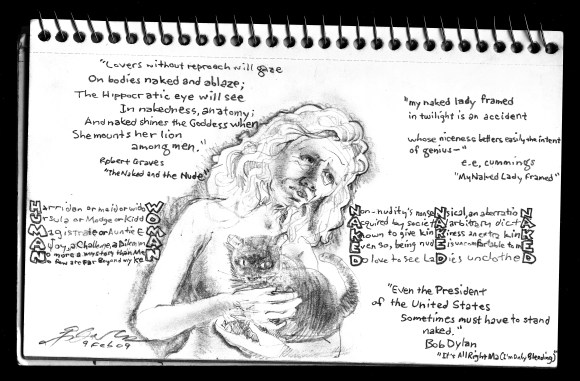 "Lovers without reproach will gaze
On bodies naked and ablaze;
The Hippocratic eye will see
In nakedness, anatomy;
And naked shines the Goddess when
She mounts her lion
among men."
Robert Graves
"The Naked and the Nude"
"my naked lady framed
in twilight is an accident
whose niceness betters easily the intent
of genius—"
e.e. cummings
"My Naked Lady Framed"
Harridan or maid or
Ursula or Madge or Kidd
Magistrate or Auntie E
A joy, a Challenge, a
No more a mystery than Me
are Far Beyond my Ke
WOMAN
Non-nudity's nonsensical, an aberratio
Acquired by societ arbitrary dict
Known to give kin an extra kin
Even so, being nud is uncomfortable to
Do love to see Ladies unclothed
NAKED
"Even the President
of the United States
Sometimes must have to stand
naked."
Bob Dylan
"It's All Right Ma (I'm Only Bleeding)
9 Feb 09